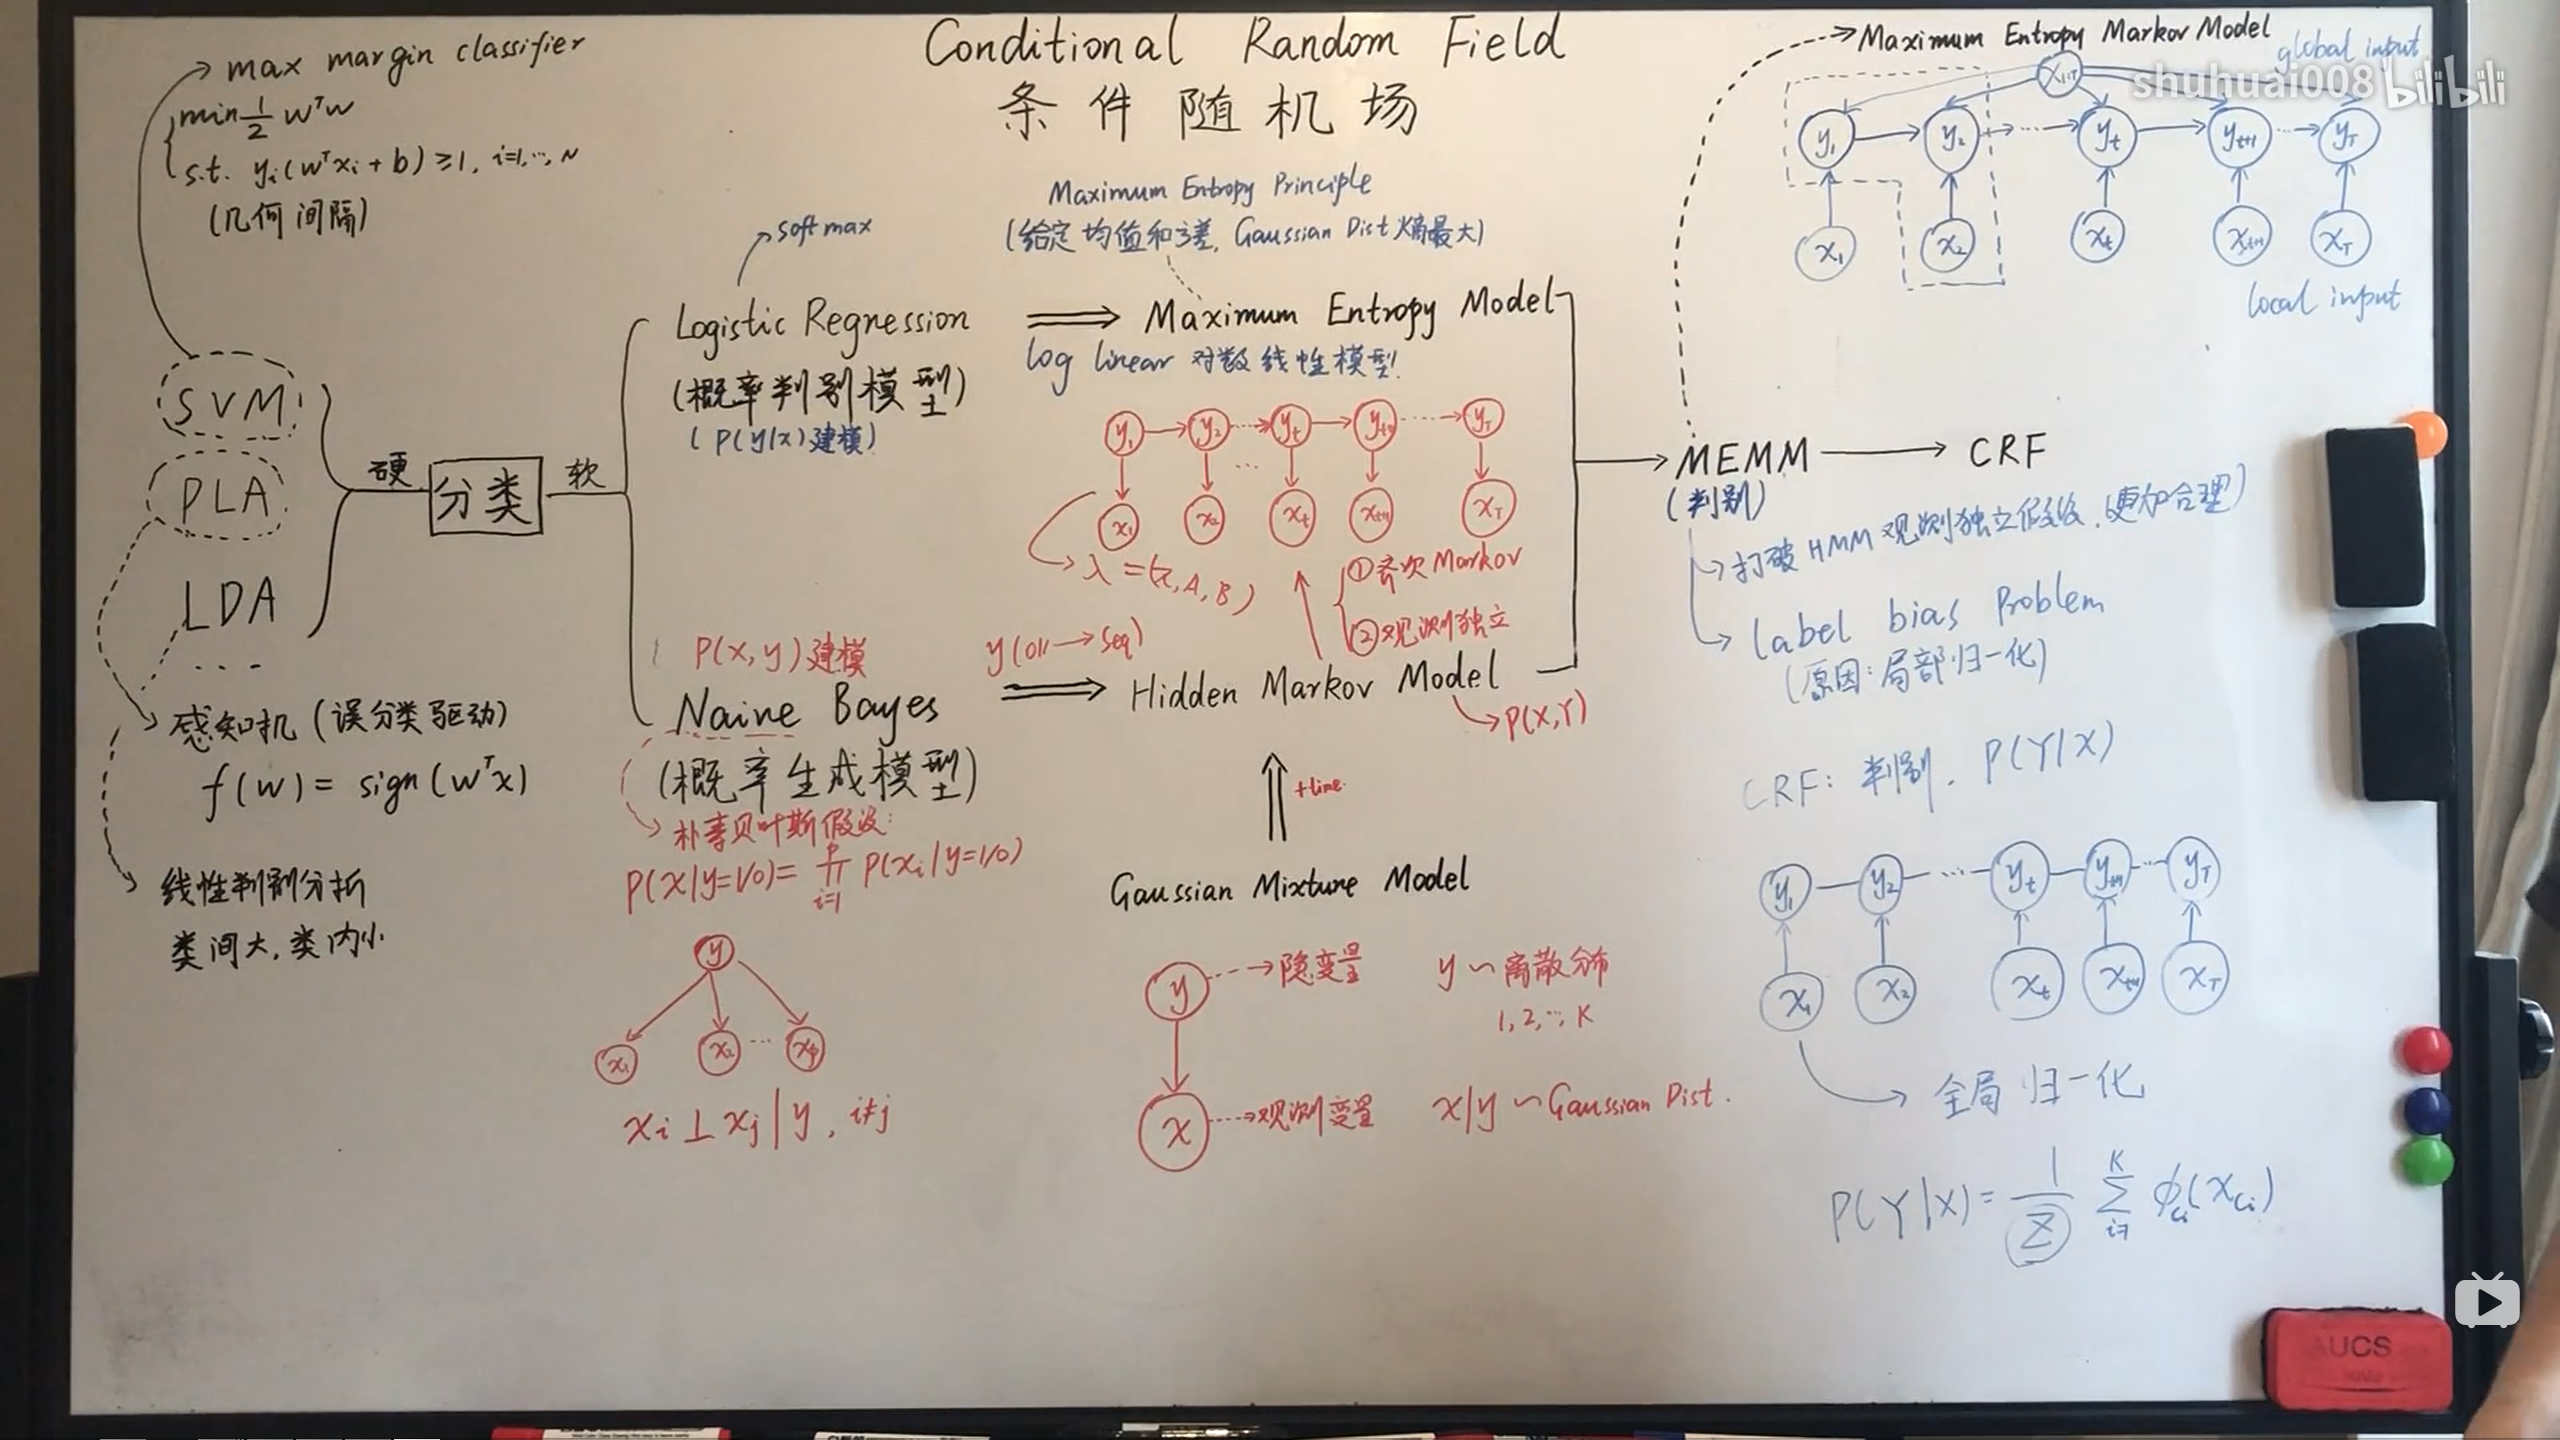 Conditional Random Field
条件随机场
max margin classifier
min 1/2 wᵀw
s.t. yᵢ(wᵀxᵢ + b) ≥ 1, i=1,…,N
(几何间隔)
SVM
PLA
LDA
...
硬
分类
软
感知机 (误分类驱动)
f(w) = sign(wᵀx)
线性判别分析
类间大,类内小
softmax
Logistic Regression
(概率判别模型)
(P(y|x)建模)
P(x,y)建模
Naive Bayes
(概率生成模型)
朴素贝叶斯假设:
P(x|y=1/0) = ∏ᵢ₌₁ᵖ P(xᵢ|y=1/0)
y
x₁ x₂ ... xₚ
xᵢ ⊥ xⱼ | y, i≠j
Maximum Entropy Principle
(给定均值和方差, Gaussian Dist 熵最大)
Maximum Entropy Model
log linear 对数线性模型.
y₁ y₂ ... yₜ yₜ₊₁ ... y_T
...
x₁ x₂ xₜ xₜ₊₁ x_T
λ = (π, A, B)
①齐次 Markov
②观测独立
y(0/1 → seq)
Hidden Markov Model
P(X,Y)
+time.
Gaussian Mixture Model
y 隐变量 y ~ 离散分布
1, 2, …, K
x 观测变量 x|y ~ Gaussian Dist.
Maximum Entropy Markov Model
global input
shuhuai008 bilibili
x₁:T
y₁ y₂ ... yₜ yₜ₊₁ ... y_T
x₁ x₂ xₜ xₜ₊₁ x_T
local input
MEMM
CRF
(判别)
打破 HMM 观测独立假设.(更加合理)
Label bias Problem
(原因:局部归一化)
CRF: 判别. P(Y|X)
y₁ y₂ ... yₜ yₜ₊₁ ... y_T
x₁ x₂ xₜ xₜ₊₁ x_T
全局归一化
P(Y|X) = 1/Z ∑ᵢ₌₁ᴷ ϕ_cᵢ(x_cᵢ)
AUCS